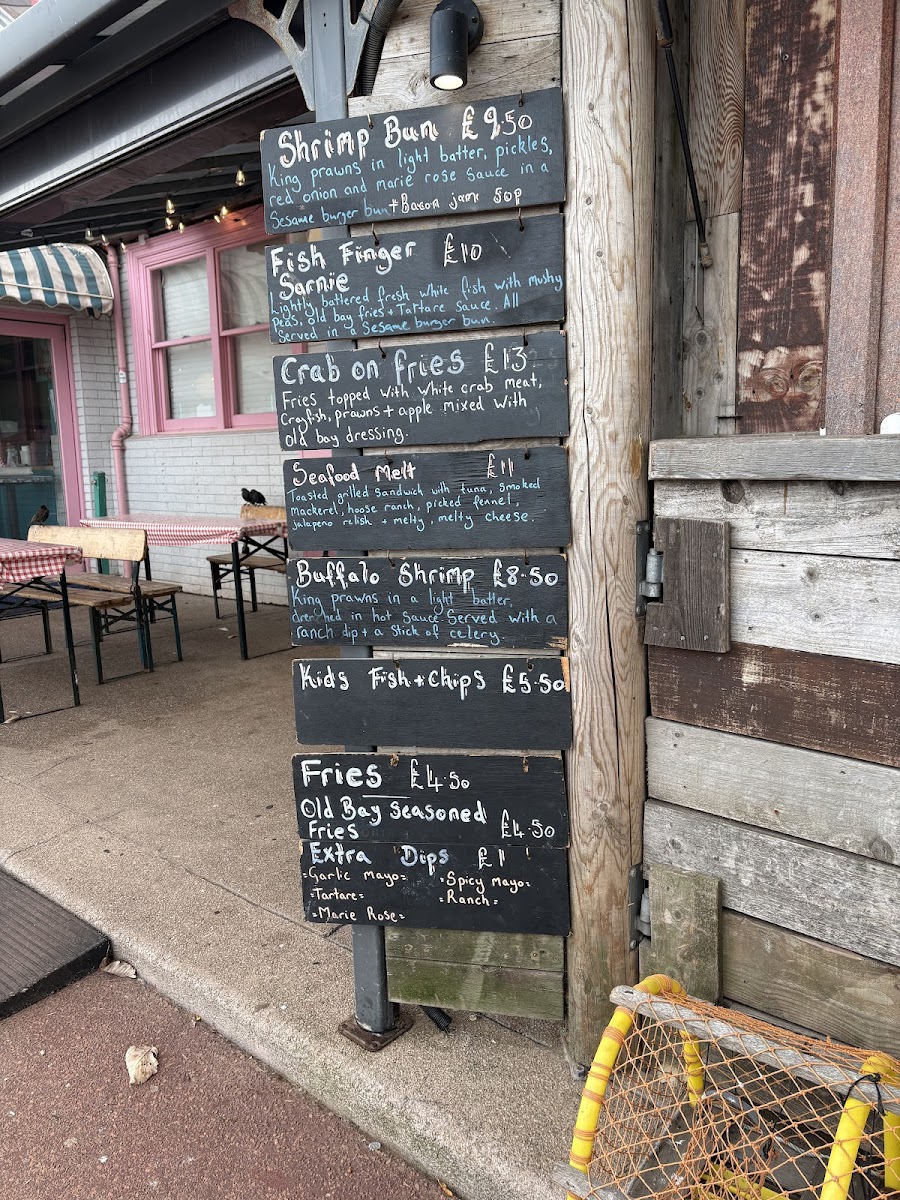 Shrimp Bun £9.50
King prawns in light batter, pickles,
red onion and marie rose sauce in a
Sesame burger bun +Bacon jam 50p
Fish Finger £10
Sarnie
Lightly battered fresh white fish with mushy
peas, old bay fries + Tartare sauce. All
Served in a Sesame burger bun.
Crab on fries £13.
Fries topped with white crab meat,
Crayfish, prawns + apple mixed with
old bay dressing.
Seafood Melt £11
Toasted, grilled sandwich with tuna, smoked
mackerel, hoose ranch, picked fennel,
jalapeno relish + melty, melty cheese.
Buffalo Shrimp £8.50
King prawns in a light batter,
drenched in hot sauce. Served with a
ranch dip + a stick of celery.
Kids Fish + Chips £5.50
Fries £4.50
Old Bay Seasoned
Fries £4.50
Extra Dips £1
=Garlic mayo= =Spicy mayo=
=Tartare= =Ranch=
=Marie Rose=